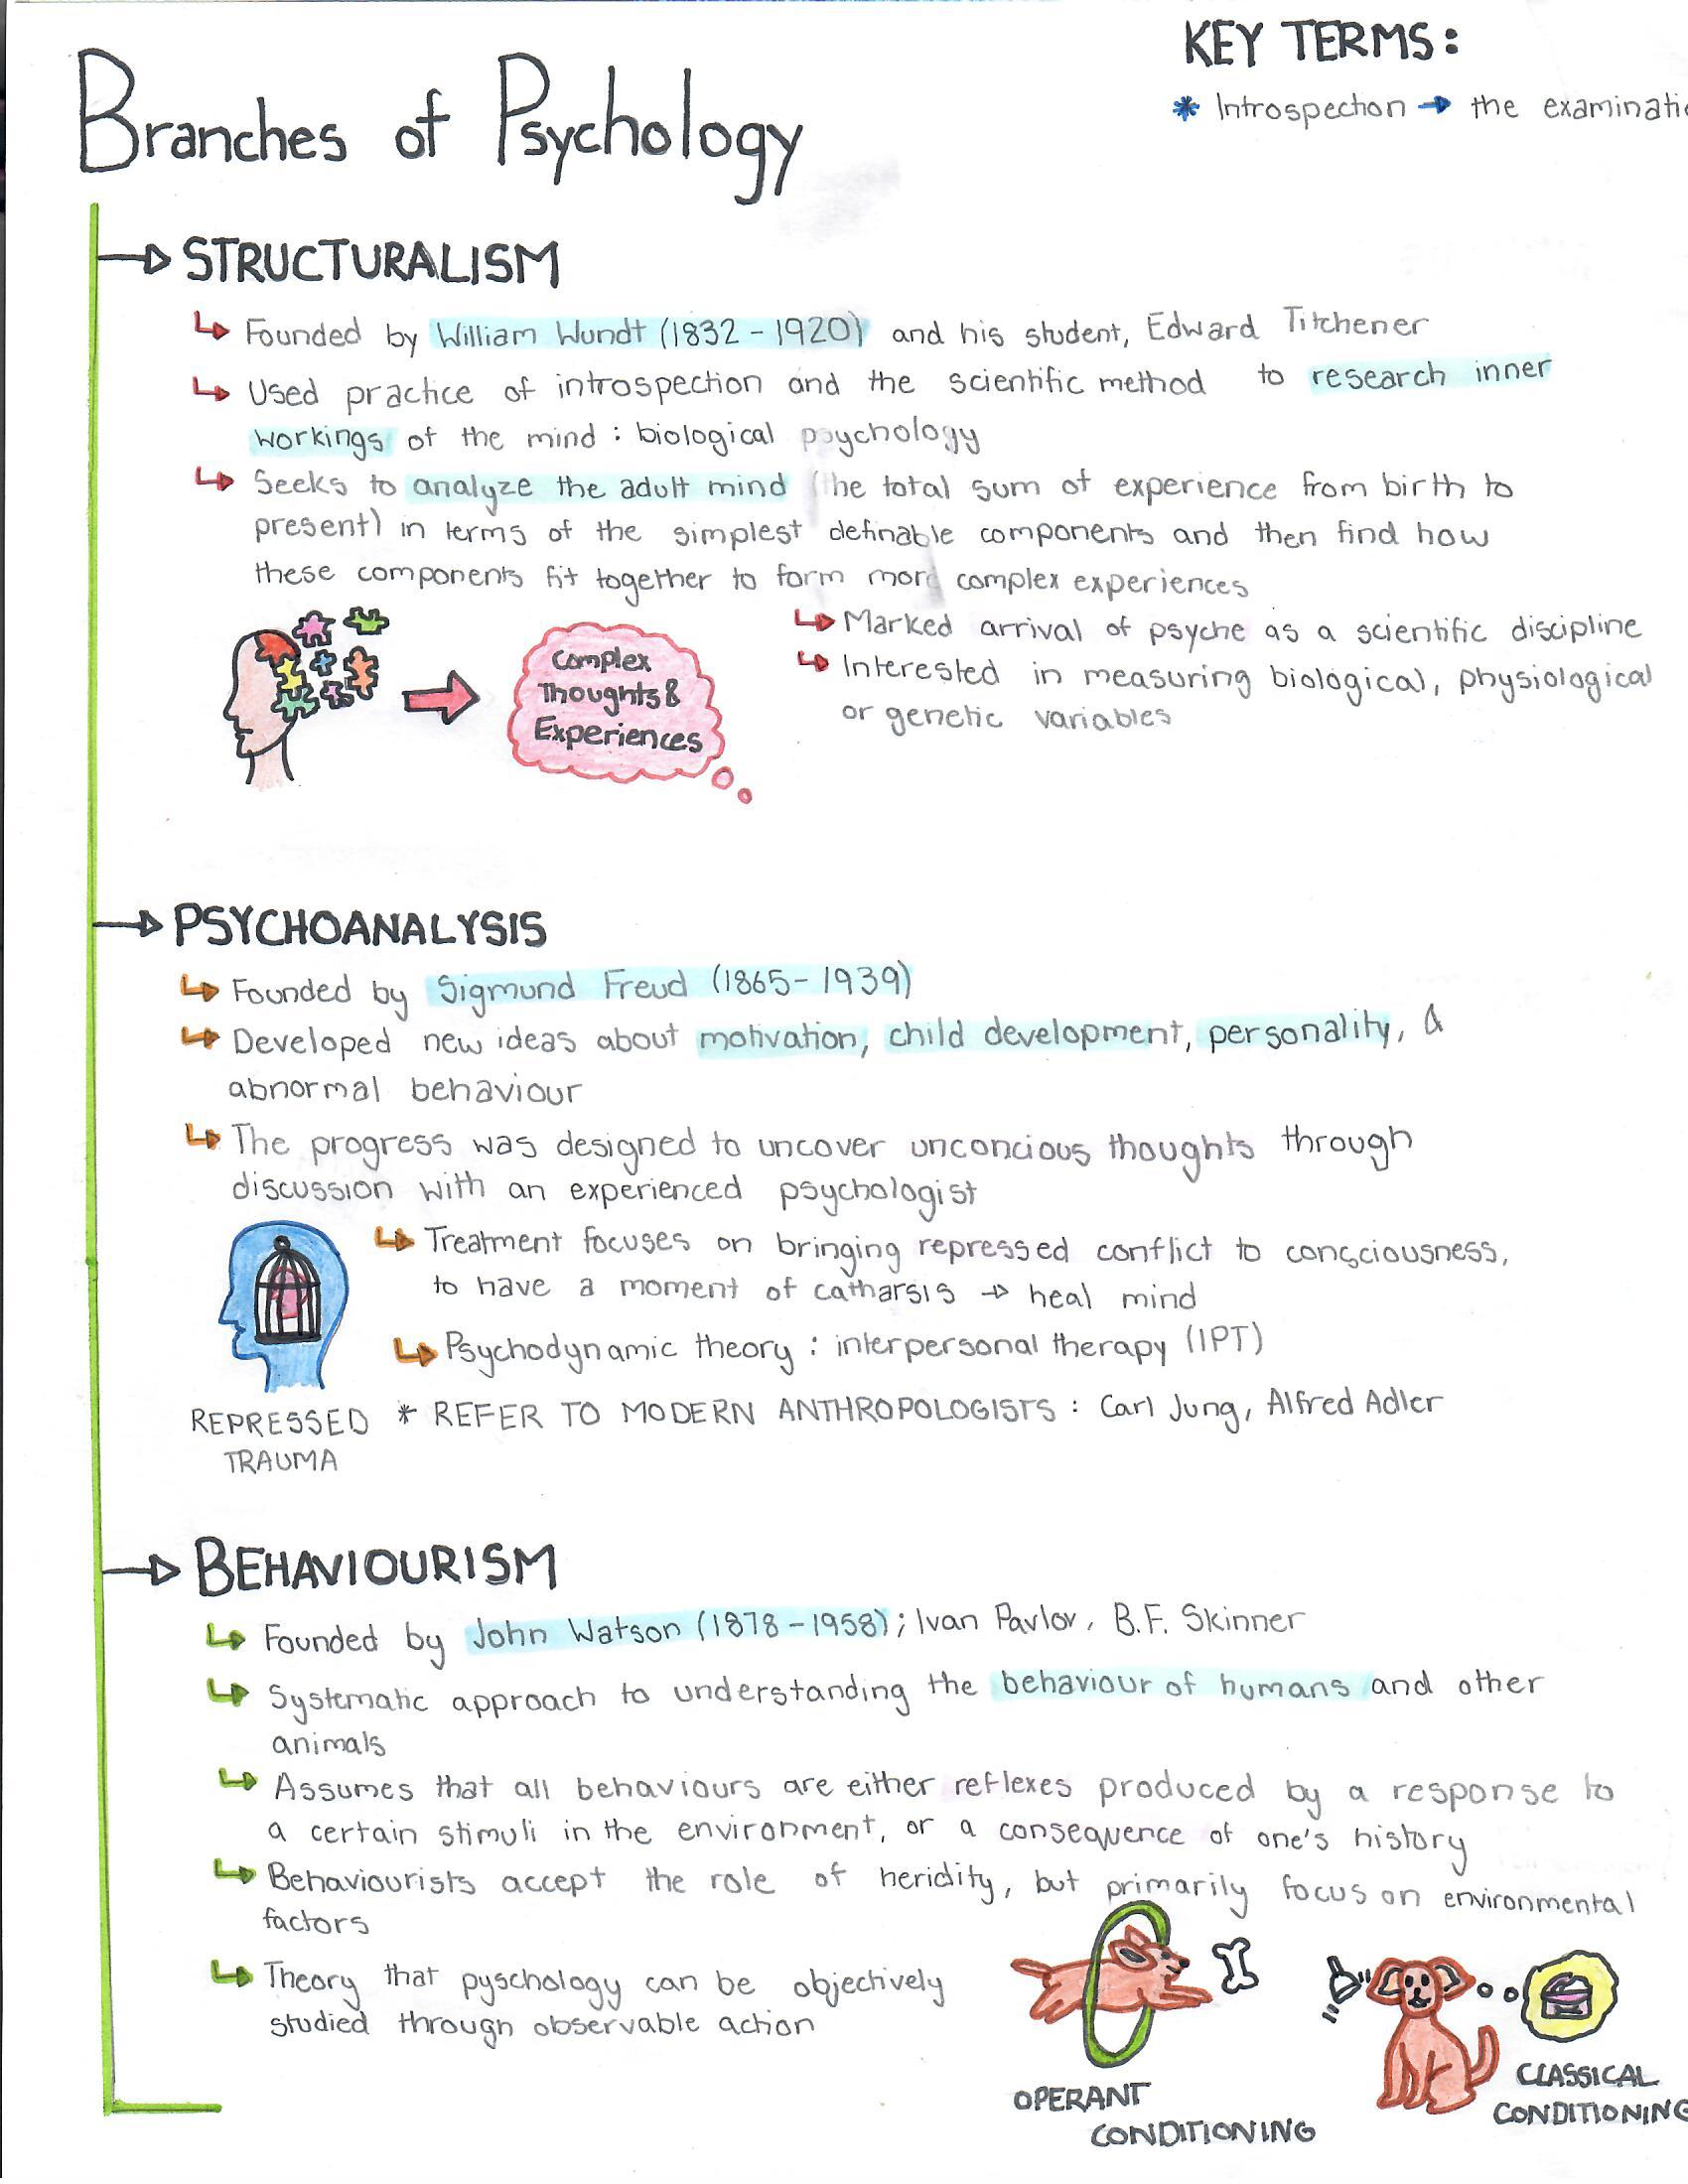 Branches of Psychology
KEY TERMS:
* Introspection → the examinatio
→ STRUCTURALISM
↳ Founded by William Wundt (1832 - 1920) and his student, Edward Titchener
↳ Used practice of introspection and the scientific method to research inner
workings of the mind : biological psychology
↳ Seeks to analyze the adult mind (the total sum of experience from birth to
present) in terms of the simplest definable components and then find how
these components fit together to form more complex experiences
Complex
Thoughts &
Experiences
↳ Marked arrival of psyche as a scientific discipline
↳ Interested in measuring biological, physiological
or genetic variables
→ PSYCHOANALYSIS
↳ Founded by Sigmund Freud (1865 - 1939)
↳ Developed new ideas about motivation, child development, personality, &
abnormal behaviour
↳ The progress was designed to uncover unconcious thoughts through
discussion with an experienced psychologist
↳ Treatment focuses on bringing repressed conflict to consciousness,
to have a moment of catharsis → heal mind
↳ Psychodynamic theory : interpersonal therapy (IPT)
REPRESSED
TRAUMA
* REFER TO MODERN ANTHROPOLOGISTS : Carl Jung, Alfred Adler
→ BEHAVIOURISM
↳ Founded by John Watson (1878 - 1958) ; Ivan Pavlov, B.F. Skinner
↳ Systematic approach to understanding the behaviour of humans and other
animals
↳ Assumes that all behaviours are either reflexes produced by a response to
a certain stimuli in the environment, or a consequence of one's history
↳ Behaviourists accept the role of heridity, but primarily focus on environmental
factors
↳ Theory that pyschology can be objectively
studied through observable action
OPERANT
CONDITIONING
CLASSICAL
CONDITIONING